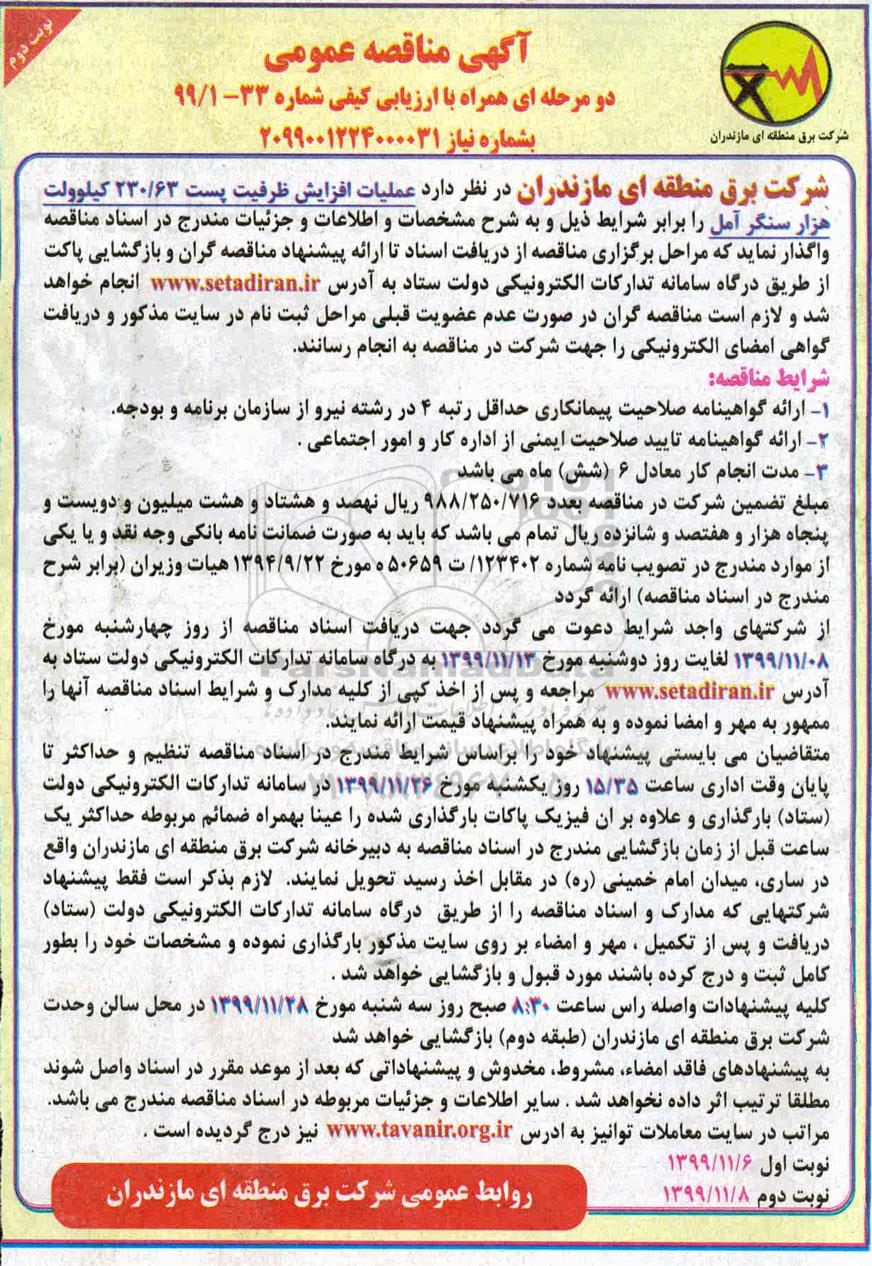 نوبت دوم
آگهی مناقصه عمومی
دو مرحله ای همراه با ارزیابی کیفی شماره ۳۳- ۹۹/۱
بشماره نیاز ۲۰۹۹۰۰۱۲۲۴۰۰۰۰۳۱
شرکت برق منطقه ای مازندران
شرکت برق منطقه ای مازندران در نظر دارد عملیات افزایش ظرفیت پست ۲۳۰/۶۳ کیلوولت
هزار سنگر آمل را برابر شرایط ذیل و به شرح مشخصات و اطلاعات و جزئیات مندرج در اسناد مناقصه
واگذار نماید که مراحل برگزاری مناقصه از دریافت اسناد تا ارائه پیشنهاد مناقصه گران و بازگشایی پاکت
از طریق درگاه سامانه تدارکات الکترونیکی دولت ستاد به آدرس www.setadiran.ir انجام خواهد
شد و لازم است مناقصه گران در صورت عدم عضویت قبلی مراحل ثبت نام در سایت مذکور و دریافت
گواهی امضای الکترونیکی را جهت شرکت در مناقصه به انجام رسانند.
شرایط مناقصه:
۱- ارائه گواهینامه صلاحیت پیمانکاری حداقل رتبه ۴ در رشته نیرو از سازمان برنامه و بودجه.
۲- ارائه گواهینامه تایید صلاحیت ایمنی از اداره کار و امور اجتماعی .
۳- مدت انجام کار معادل ۶ (شش) ماه می باشد
مبلغ تضمین شرکت در مناقصه بعدد ۹۸۸/۲۵۰/۷۱۶ ریال نهصد و هشتاد و هشت میلیون و دویست و
پنجاه هزار و هفتصد و شانزده ریال تمام می باشد که باید به صورت ضمانت نامه بانکی وجه نقد و یا یکی
از موارد مندرج در تصویب نامه شماره ۱۲۳۴۰۲/ ت ۵۰۶۵۹ ه مورخ ۱۳۹۴/۹/۲۲ هیات وزیران (برابر شرح
مندرج در اسناد مناقصه) ارائه گردد
از شرکتهای واجد شرایط دعوت می گردد جهت دریافت اسناد مناقصه از روز چهارشنبه مورخ
۱۳۹۹/۱۱/۰۸ لغایت روز دوشنبه مورخ ۱۳۹۹/۱۱/۱۳ به درگاه سامانه تدارکات الکترونیکی دولت ستاد به
آدرس www.setadiran.ir مراجعه و پس از اخذ کپی از کلیه مدارک و شرایط اسناد مناقصه آنها را
ممهور به مهر و امضا نموده و به همراه پیشنهاد قیمت ارائه نمایند.
متقاضیان می بایستی پیشنهاد خود را براساس شرایط مندرج در اسناد مناقصه تنظیم و حداکثر تا
پایان وقت اداری ساعت ۱۵/۳۵ روز یکشنبه مورخ ۱۳۹۹/۱۱/۲۶ در سامانه تدارکات الکترونیکی دولت
(ستاد) بارگذاری و علاوه بر ان فیزیک پاکات بارگذاری شده را عینا بهمراه ضمائم مربوطه حداکثر یک
ساعت قبل از زمان بازگشایی مندرج در اسناد مناقصه به دبیرخانه شرکت برق منطقه ای مازندران واقع
در ساری، میدان امام خمینی (ره) در مقابل اخذ رسید تحویل نمایند. لازم بذکر است فقط پیشنهاد
شرکتهایی که مدارک و اسناد مناقصه را از طریق درگاه سامانه تدارکات الکترونیکی دولت (ستاد)
دریافت و پس از تکمیل ، مهر و امضاء بر روی سایت مذکور بارگذاری نموده و مشخصات خود را بطور
کامل ثبت و درج کرده باشند مورد قبول و بازگشایی خواهد شد .
کلیه پیشنهادات واصله راس ساعت ۸:۳۰ صبح روز سه شنبه مورخ ۱۳۹۹/۱۱/۲۸ در محل سالن وحدت
شرکت برق منطقه ای مازندران (طبقه دوم) بازگشایی خواهد شد
به پیشنهادهای فاقد امضاء، مشروط، مخدوش و پیشنهاداتی که بعد از موعد مقرر در اسناد واصل شوند
مطلقا ترتیب اثر داده نخواهد شد . سایر اطلاعات و جزئیات مربوطه در اسناد مناقصه مندرج می باشد.
مراتب در سایت معاملات توانیز به ادرس www.tavanir.org.ir نیز درج گردیده است .
نوبت اول ۱۳۹۹/۱۱/۶
نوبت دوم ۱۳۹۹/۱۱/۸
روابط عمومی شرکت برق منطقه ای مازندران